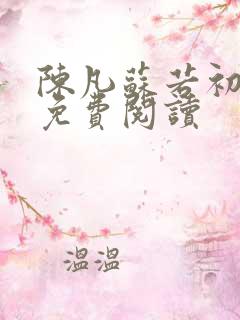 陳凡蘇若初
免費閱讀
溫溫